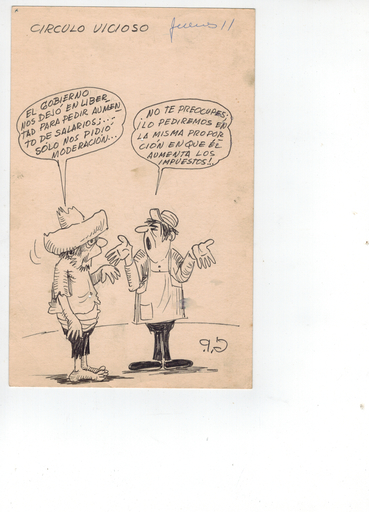 CIRCULO VICIOSO
Jueves 11
EL GOBIERNO
NOS DEJÓ EN LIBER
TAD PARA PEDIR AUMEN
TO DE SALARIOS;...
SÓLO NOS PIDIÓ
MODERACIÓN...
NO TE PREOCUPES;
¡LO PEDIREMOS EN
LA MISMA PROPOR
CIÓN EN QUE ÉL
AUMENTA LOS
IMPUESTOS!